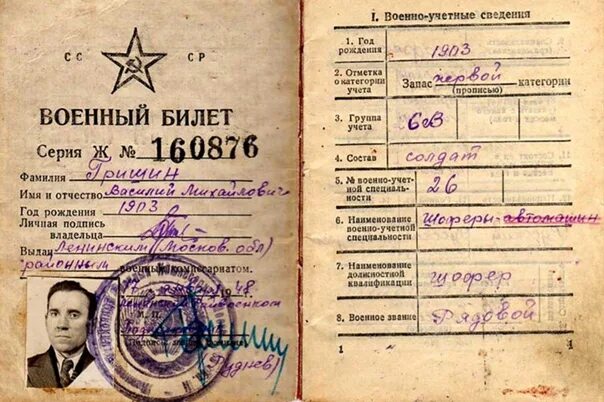 СС СР
ВОЕННЫЙ БИЛЕТ
Серия Ж № 160876
Фамилия Гришин
Имя и отчество Василий Михайлович
Год рождения 1903
Личная подпись
владельца
Выдан Ленинским (Москов. обл)
районным военным комиссариатом.
48
М. П.
(Руднев)
I. Военно-учетные сведения
1. Год рождения 1903
2. Отметка о категории учета Запас первой категории
(прописью)
3. Группа учета 26В
4. Состав солдат
5. № военно-учетной специальности 26
6. Наименование военно-учетной специальности шоферы автомашин
7. Наименование должностной квалификации шофер
8. Военное звание Рядовой
1 1